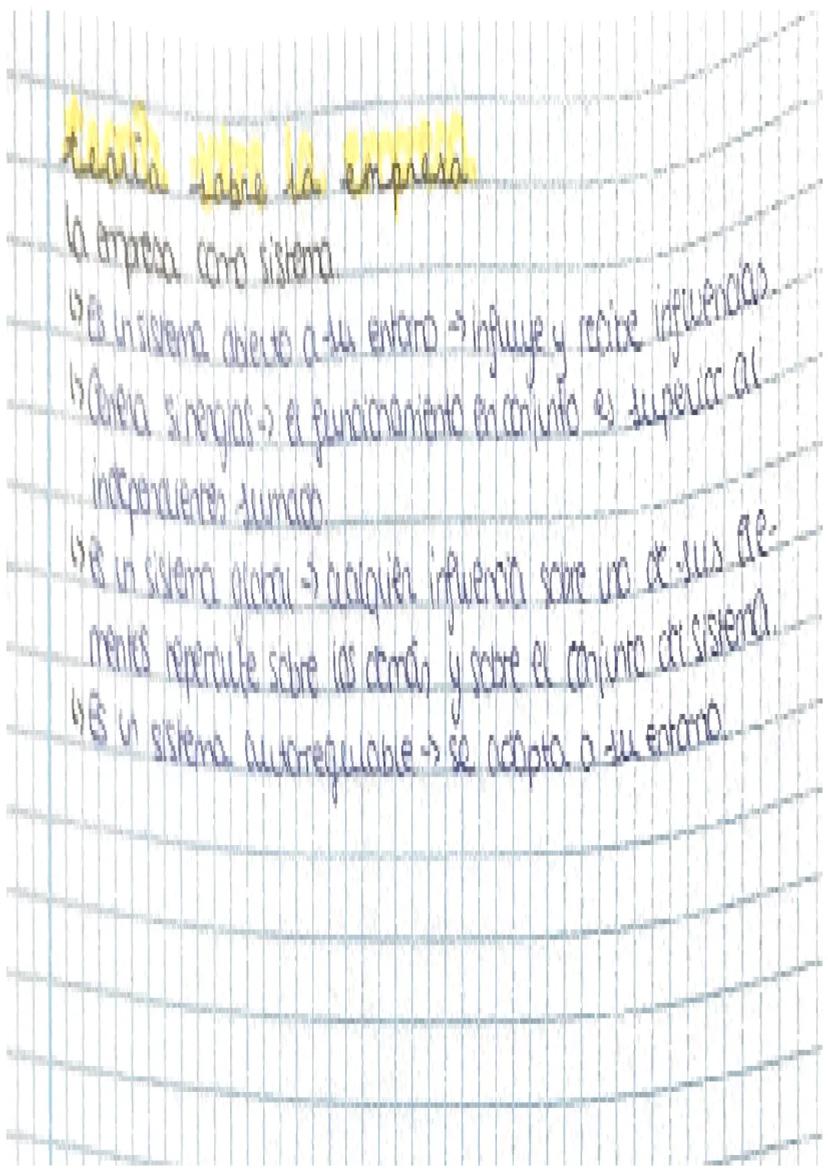 teoría sobre la empresa
la empresa como sistema
↳ Es un sistema abierto a su entorno → influye y recibe influencias.
↳ Genera sinergias → el funcionamiento en conjunto es superior al
independiente sumado.
↳ Es un sistema global → cualquier influencia sobre uno de sus ele-
mentos repercute sobre los demás y sobre el conjunto del sistema.
↳ Es un sistema autorregulable → se adapta a su entorno.